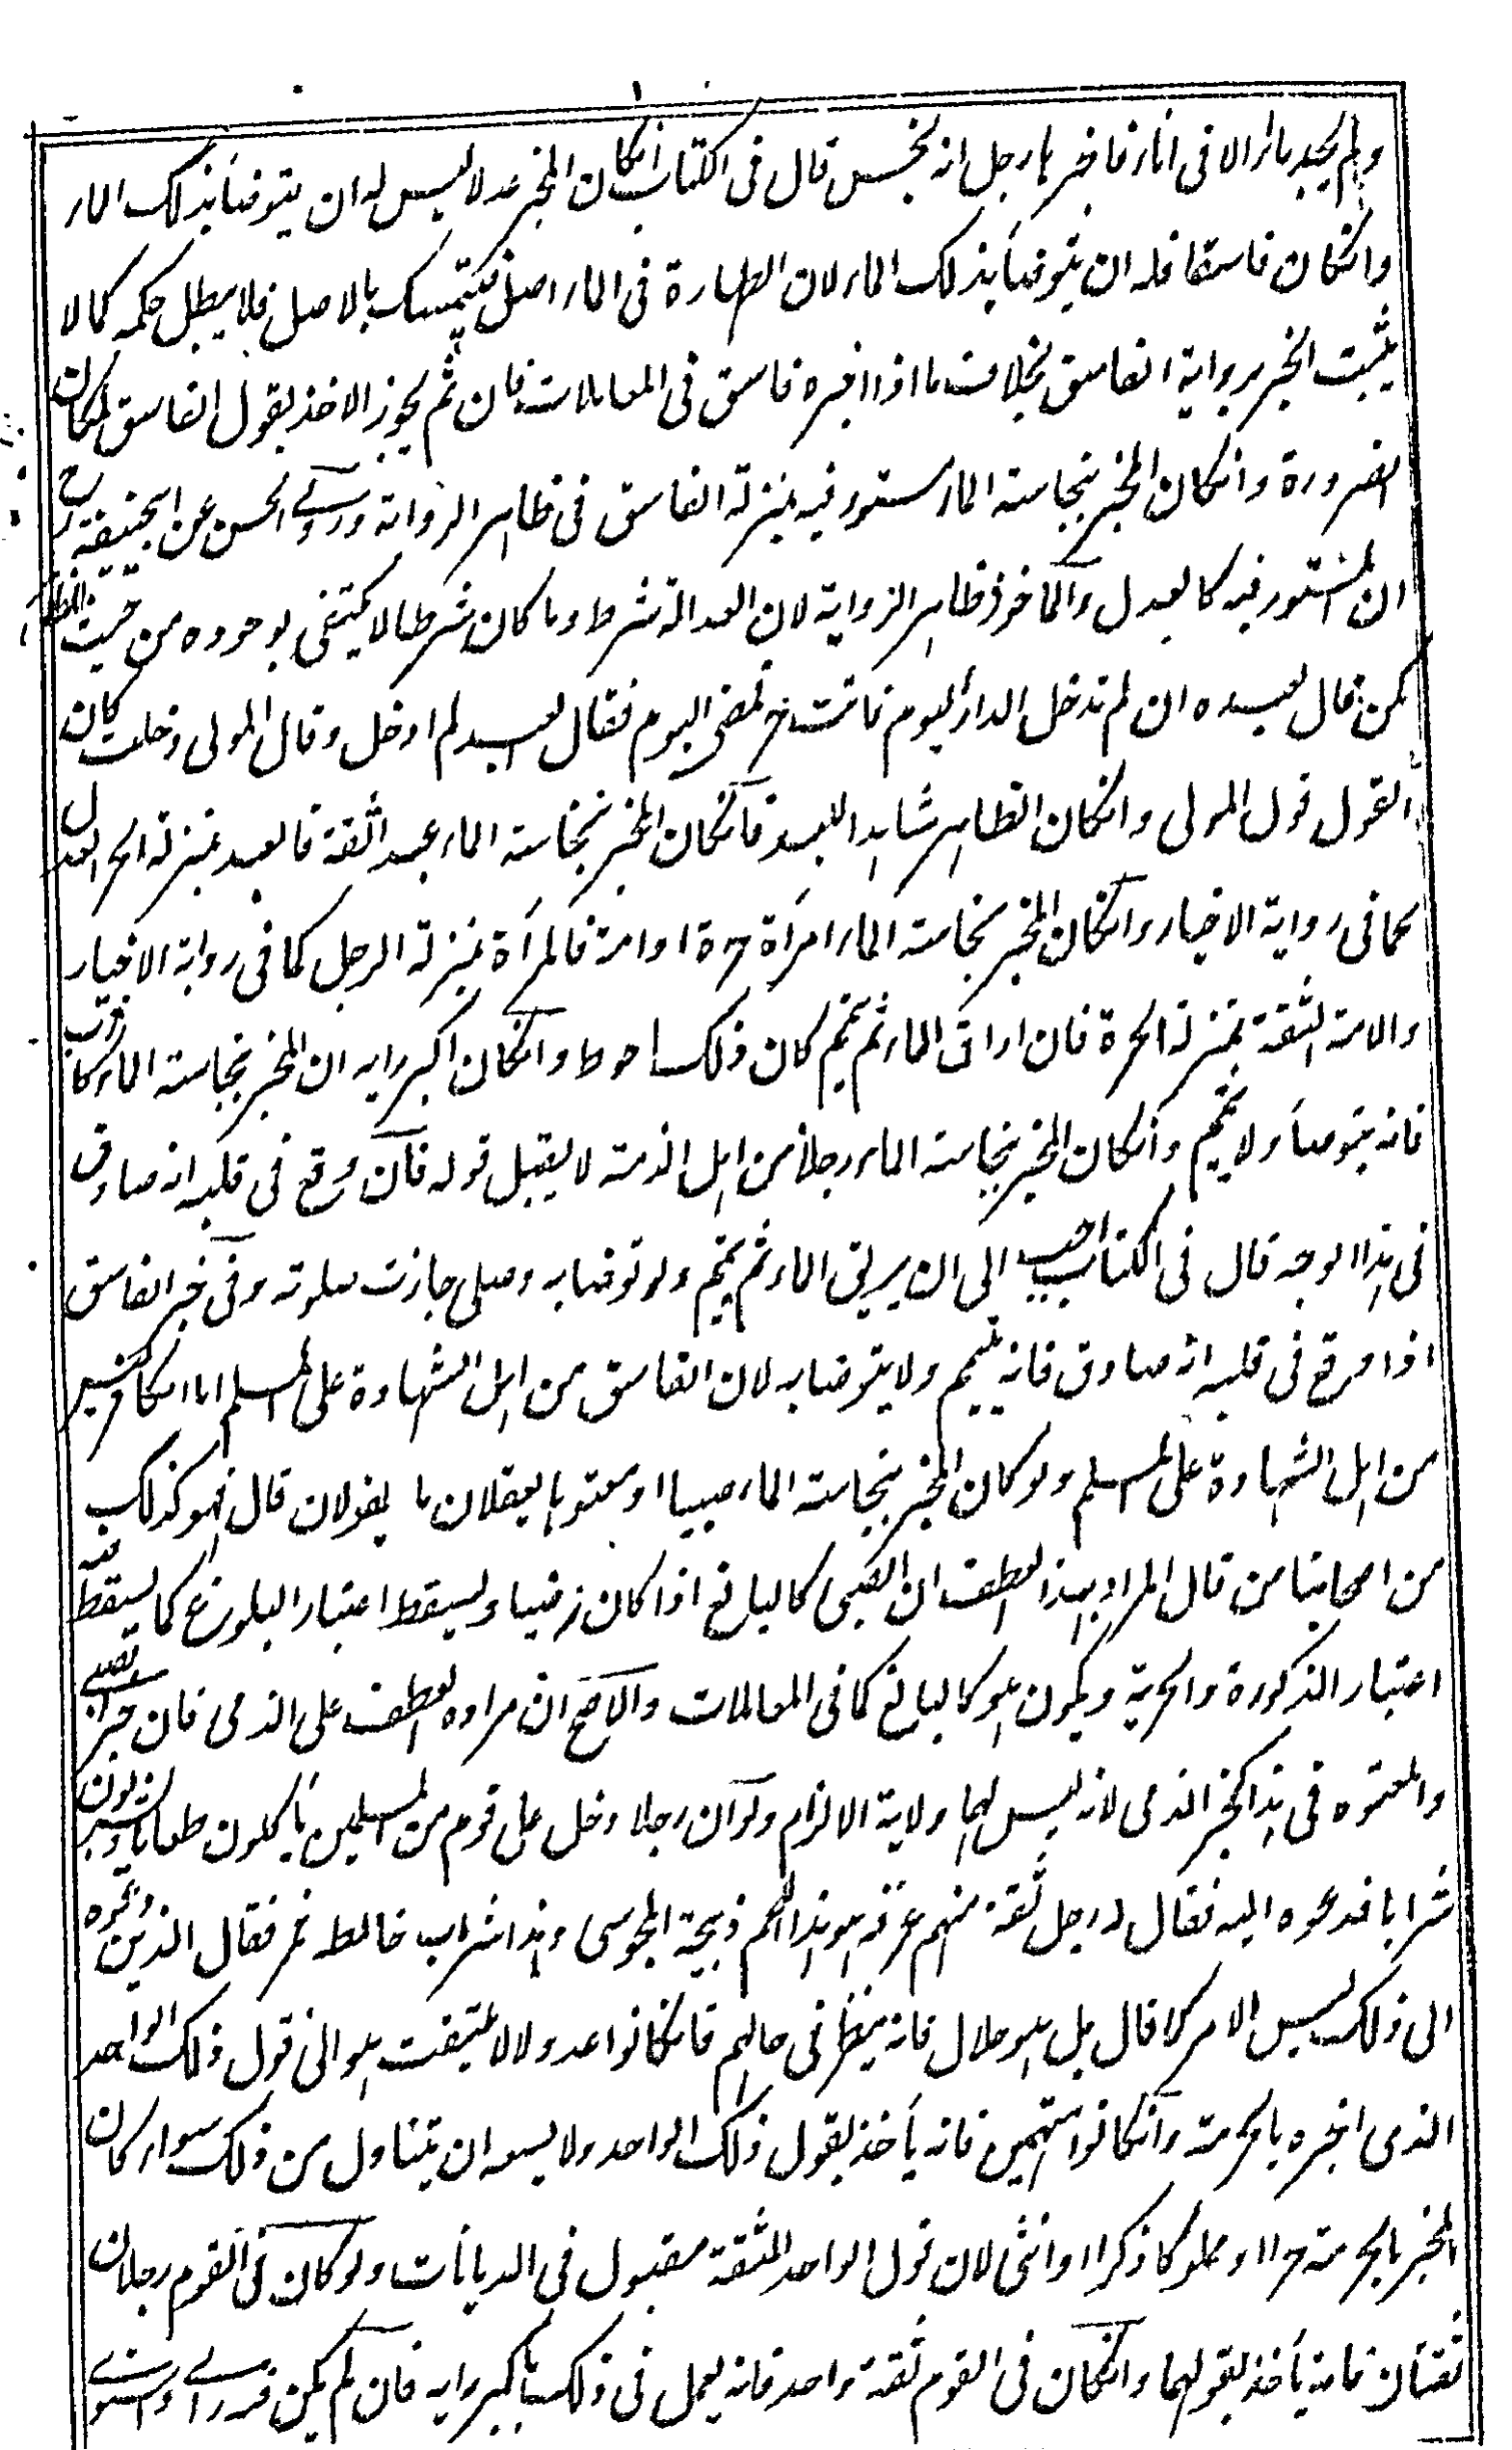 ولم يجد ماء الا فى اناء فاخبره رجل انه نجس قال فى الكتاب انكان المخبر عدلا ليس له ان يتوضأ بذلك الماء
وانكان فاسقا فله ان يتوضأ بذلك الماء لان الطهارة فى الماء اصل فيتمسك بالاصل فلا يبطل حكمه كما لا
يثبت الخبر برواية الفاسق بخلاف ما اذا اخبره فاسق فى المعاملات فان ثم يجوز الاخذ بقول الفاسق لمكان
الضرورة وانكان المخبر بنجاسة الماء مستورا فهو بمنزلة الفاسق فى ظاهر الرواية وروى الحسن عن ابيحنيفة رح
ان المستور فيه كالعدل والماخوذ ظاهر الرواية لان العدالة شرط وما كان شرطا لا يكتفى بوجوده من حيث الظاهر
كمن قال لعبده ان لم تدخل الدار اليوم فانت حر فمضى اليوم فقال العبد لم ادخل وقال المولى دخلت كان
القول قول المولى وانكان الظاهر شاهدا للعبد فانكان المخبر بنجاسة الماء عبدا ثقة فالعبد بمنزلة الحر العدل
كما فى رواية الاخبار وانكان المخبر بنجاسة الماء امرأة حرة او امة فالمرأة بمنزلة الرجل كما فى رواية الاخبار
والامة الثقة بمنزلة الحرة فان اراق الماء ثم تيمم كان ذلك احوط وانكان اكبر رايه ان المخبر بنجاسة الماء كاذب
فانه يتوضأ ولا يتيمم وانكان المخبر بنجاسة الماء رجلا من اهل الذمة لا يقبل قوله فان وقع فى قلبه انه صادق
فى هذا الوجه قال فى الكتاب احب الى ان يريق الماء ثم يتيمم ولو توضا به وصلى جازت صلوته وفى خبر الفاسق
اذا وقع فى قلبه انه صادق فانه يتيمم ولا يتوضا به لان الفاسق من اهل الشهادة على المسلم اما الكافر ليس
من اهل الشهادة على المسلم ولو كان المخبر بنجاسة الماء صبيا او معتوها يعقلان ما يقولان قال فهو كذلك
من اصحابنا من قال المراد بهذا العطف ان الصبى كالبالغ اذا كان مرضيا ويسقط اعتبار البلوغ كما يسقط فيه
اعتبار الذكورة والحرية ويكون هو كالبالغ كما فى المعاملات والاصح ان مراده العطف على الذمى فان خبر الصبى
والمعتوه فى هذا كخبر الذمى لانه ليس لهما ولاية الالزام ولو ان رجلا دخل على قوم من المسلمين يأكلون طعاما ويشربون
شرابا فدعوه اليه فقال له رجل ثقة منهم عرفه هو هذا اللحم ذبيحة المجوسى وهذا شراب خالطه خمر فقال الذين دعوه
الى ذلك ليس الامر كما قال بل هو حلال فانه ينظر فى حالهم فانكانوا عدولا لا يلتفت هو الى قول ذلك الواحد
الذى اخبره بالحرمة وانكانوا متهمين فانه يأخذ بقول ذلك الواحد ولا يسعه ان يتناول من ذلك سواء كان
المخبر بالحرمة حرا او مملوكا ذكرا او انثى لان قول الواحد الثقة مقبول فى الديانات ولو كان فى القوم رجلان
ثقتان فانه يأخذ بقولهما وانكان فى القوم ثقة واحد فانه يعمل فى ذلك باكبر رايه فان لم يكن فيه راى واستوى